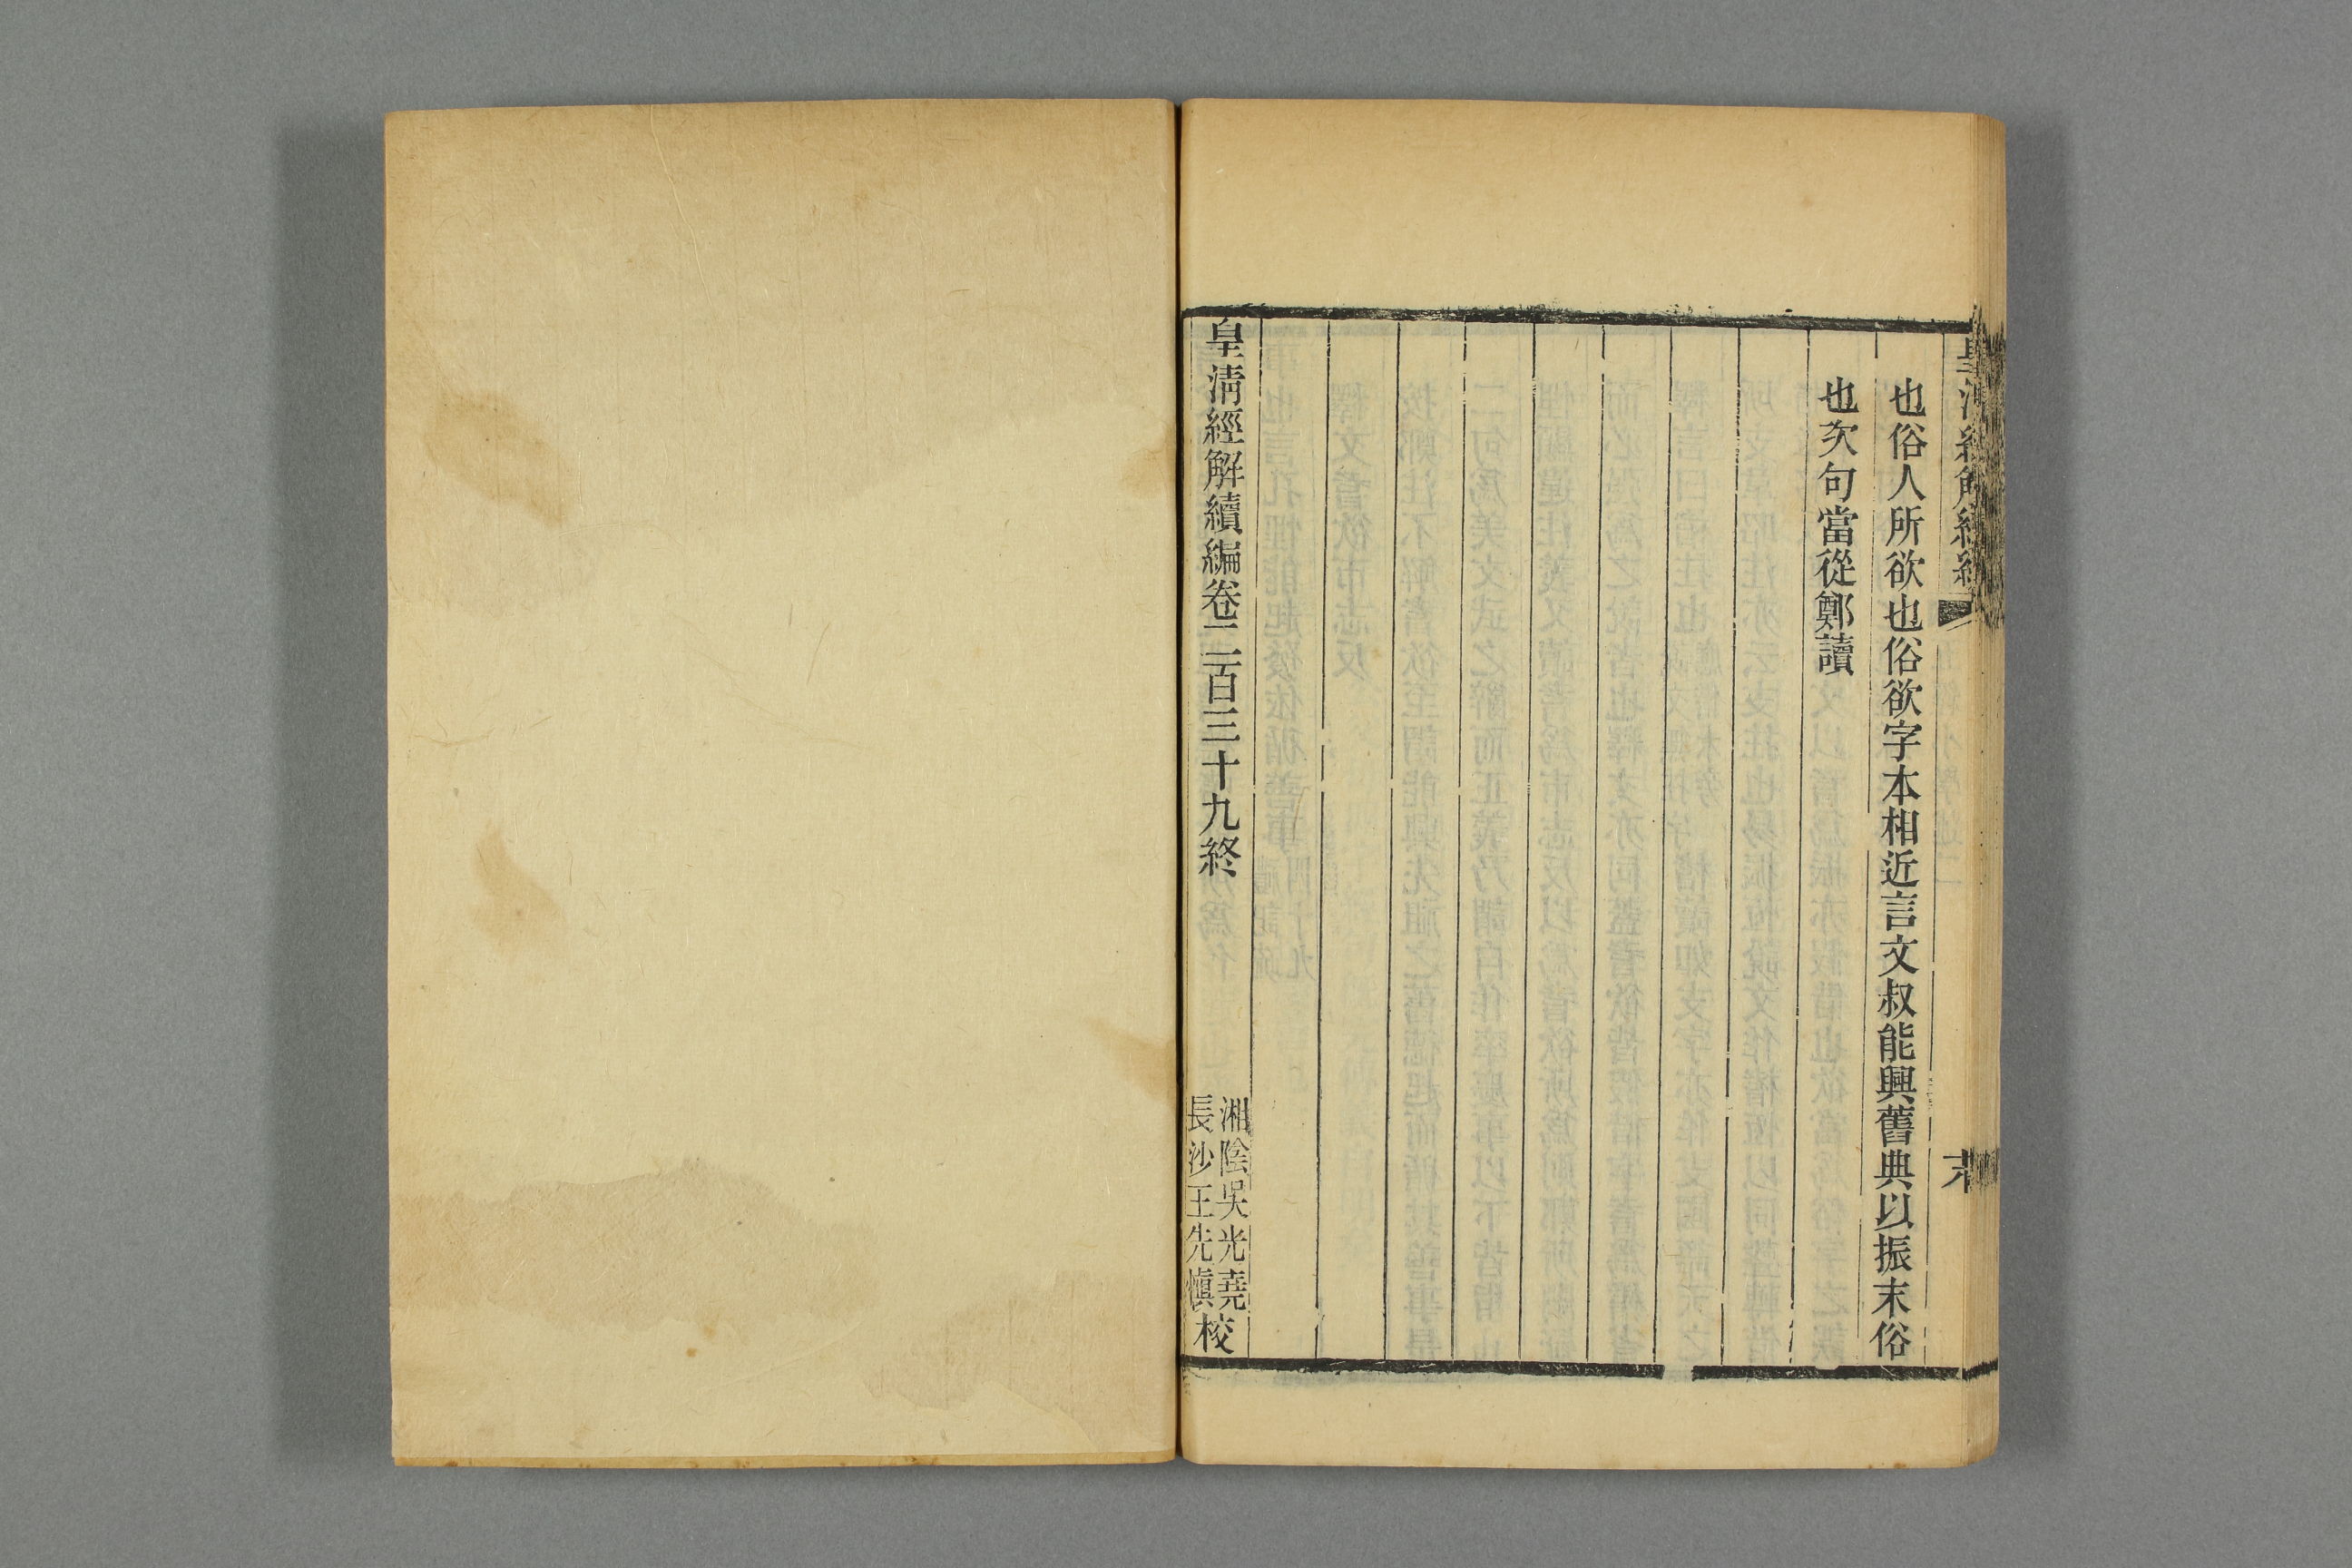 皇清經解續編
末
也俗人所欲也俗欲字本相近言文叔能興舊典以振末俗
也次句當從鄭讀
皇清經解續編卷二百三十九終
湘陰吳光堯
長沙王先愼校